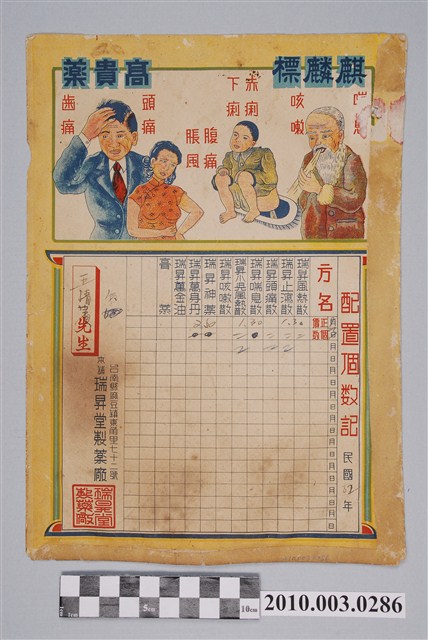 麒麟標
高貴藥
咳嗽
赤痢
下痢
腹痛
脹風
頭痛
齒痛
配置個数記
民國52年
方名
瑞昇風熱散
瑞昇止瀉散
瑞昇頭痛散
瑞昇喘息散
瑞昇咳嗽散
瑞昇神藥
瑞昇萬身丹
瑞昇萬金油
膏藥
月 日
先生
台南縣麻豆鎮東角里七十二號
本舖 瑞昇堂製藥廠
瑞昇堂製藥廠
5cm
10cm
2010.003.0286